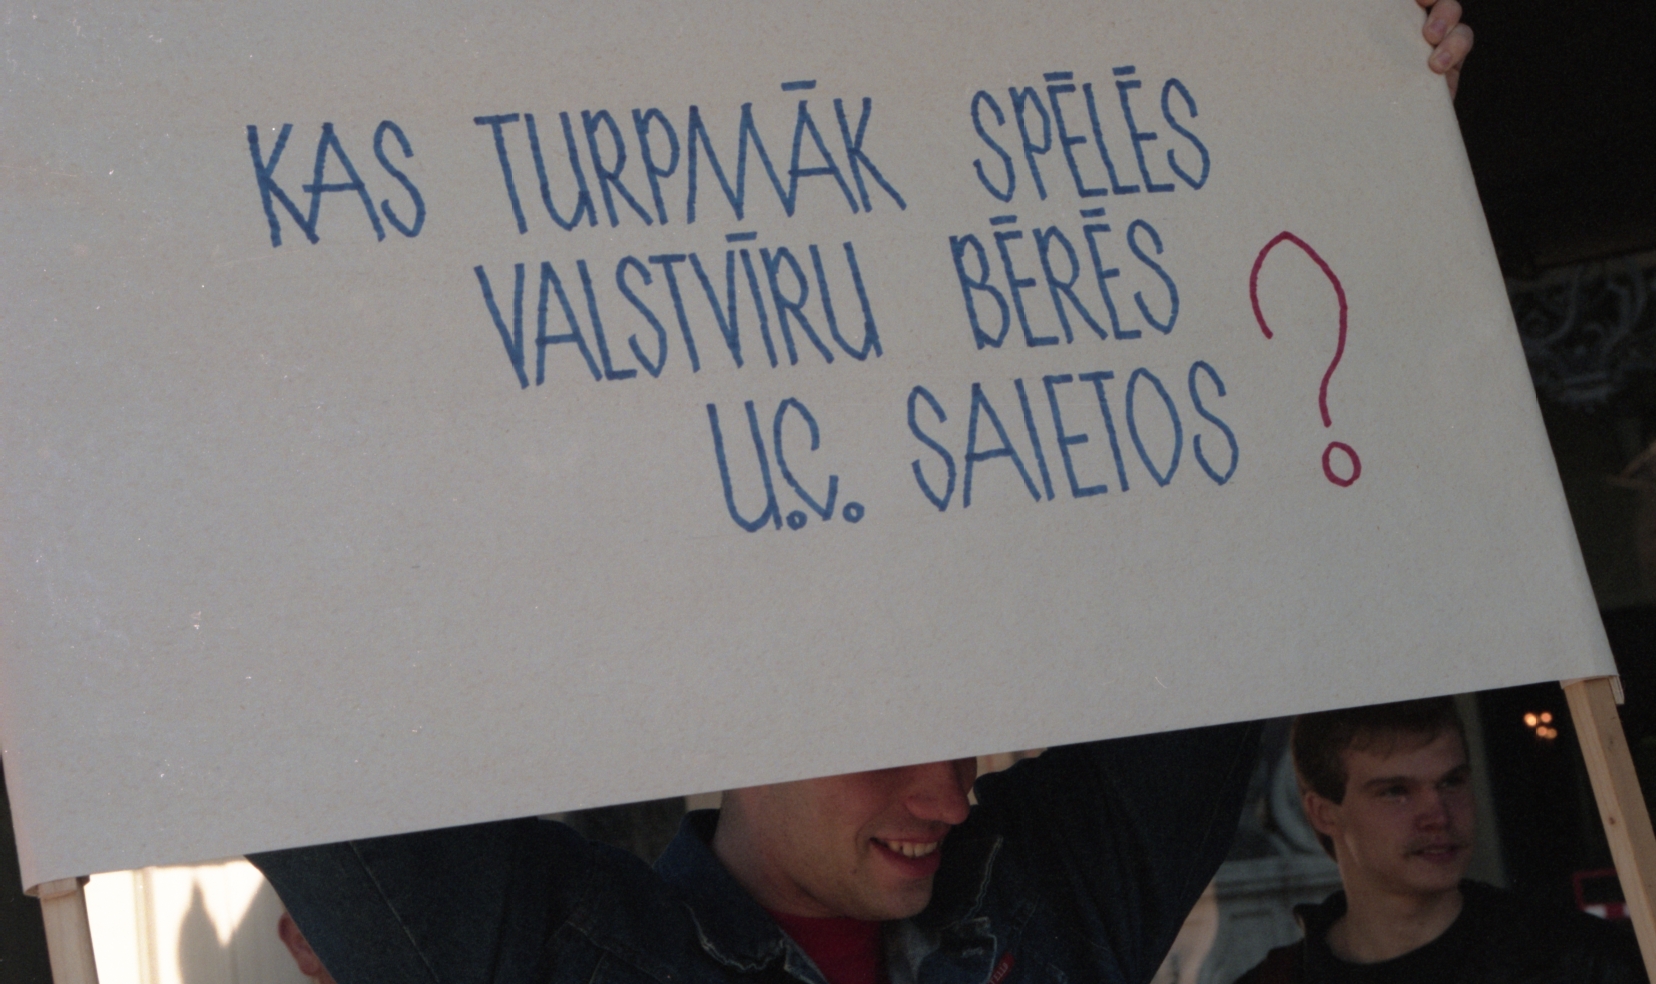 KAS TURPMĀK SPĒLĒS
VALSTVĪRU BĒRĒS ?
U.C. SAIETOS